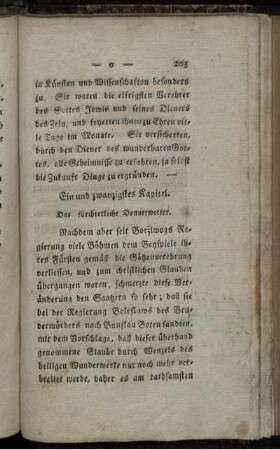 — o — 205
in Künsten und Wissenschaften besonders
zu. Sie waren die eifrigsten Verehrer
des Gottes Jowis und seines Dieners
des Zelu, und feyerten ihnen zu Ehren vie-
le Tage im Monate. Sie versicherten,
durch den Diener des wunderbaren Got-
tes, alle Geheimnisse zu erfahren, ja selbst
die Zukunft Dinge zu ergründen. —
Ein und zwanzigstes Kapitel.
Das fürchterliche Donnerwetter.
Nachdem aber seit Borziwogs Re-
gierung viele Böhmen dem Beyspiele ih-
res Fürsten gemäß die Götzenverehrung
verliessen, und zum christlichen Glauben
übergangen waren, schmerzte diese Ver-
änderung den Saatzern so sehr; daß sie
bei der Regierung Boleslaws des Bru-
dermörders nach Bunzlau Boten sandten,
mit dem Vorschlage, daß dieser überhand
genommene Glaube durch Wenzels des
heiligen Wunderwerke nur noch mehr ver-
breitet werde, daher es am rathsamsten